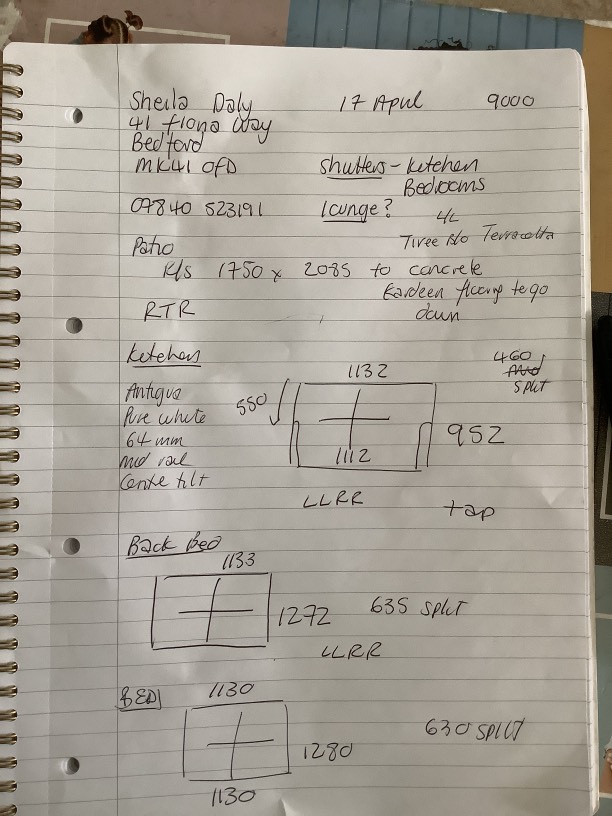 Sheila Daly 17 April 9000
41 Fiona Way
Bedford
MK41 0FD Shutters - Kitchen
Bedrooms
07840 523191 lounge?
4/L
Patio Tiree Terracotta
R/S 1750 x 2085 to concrete
Kardeen flooring to go
RTR down
Kitchen
1132 460
split
Antigua 550
Pure white
64 mm 952
mid rail 1112
Centre tilt
LLRR tap
Back Bed
1133
1272 635 split
LLRR
BED1 1130
630 split
1280
1130